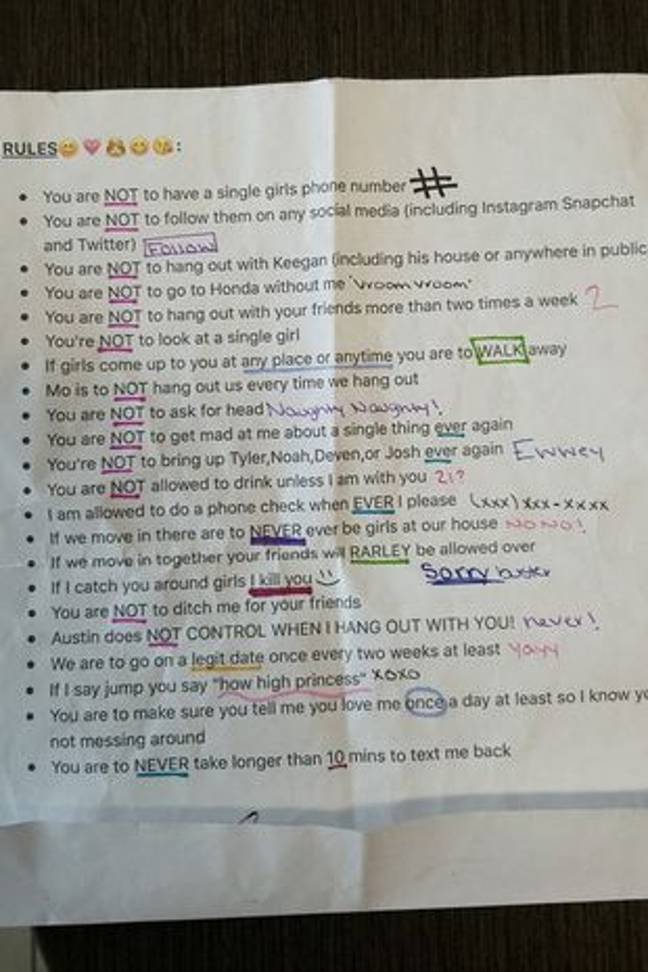 RULES😊💗🙈😊😘:
• You are NOT to have a single girls phone number #
• You are NOT to follow them on any social media (including Instagram Snapchat
and Twitter) Follow
• You are NOT to hang out with Keegan (including his house or anywhere in public
• You are NOT to go to Honda without me "vroom vroom"
• You are NOT to hang out with your friends more than two times a week 2
• You're NOT to look at a single girl
• If girls come up to you at any place or anytime you are to WALK away
• Mo is to NOT hang out us every time we hang out
• You are NOT to ask for head Naughty Naughty!
• You are NOT to get mad at me about a single thing ever again
• You're NOT to bring up Tyler,Noah,Deven,or Josh ever again Ewwey
• You are NOT allowed to drink unless I am with you 21?
• I am allowed to do a phone check when EVER I please (xxx) xxx-xxxx
• If we move in there are to NEVER ever be girls at our house NO NO!
• If we move in together your friends will RARLEY be allowed over
• If I catch you around girls I kill you Sorry buster
• You are NOT to ditch me for your friends
• Austin does NOT CONTROL WHEN I HANG OUT WITH YOU! never!
• We are to go on a legit date once every two weeks at least yayy
• If I say jump you say "how high princess" xoxo
• You are to make sure you tell me you love me once a day at least so I know
not messing around
• You are to NEVER take longer than 10 mins to text me back